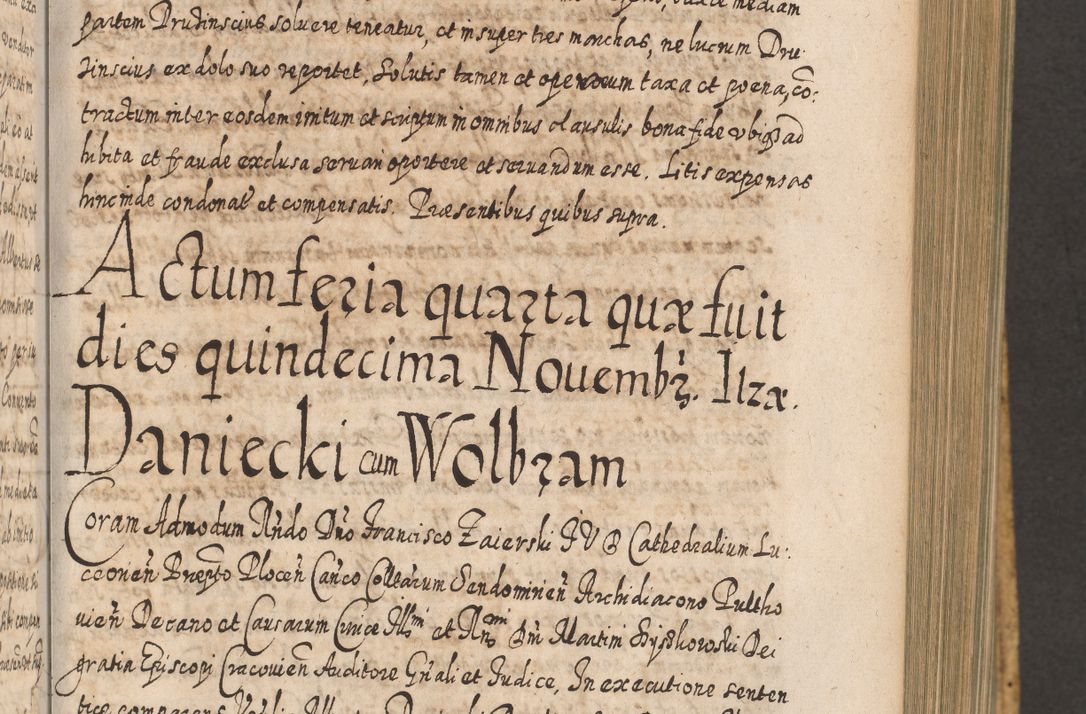 partem Drudinscius soluere teneatur, et in super tres marchas, ne lucrum Dru
dinscius ex dolo suo reportet, Solutis tamen et operarum taxa et poena, cõ:
tractum inter eosdem initum et scriptum in omnibus clausulis bona fide ubiqȝ ad
hibita et fraude exclusa seruari oportere et seruandum esse. Litis expensas
hincinde condonat' et compensatis. Præsentibus quibus supra.
Actum feria quarta quæ fuit
dies quindecima Nouembr̃. Ilza.
Daniecki cum Wolbram
Coram Admodum Rñdo Dño Francisco Zaierski I V D Cathedralium Lu:
ceorień Præpto Ploceń Canco Collarum Sendomirień Archidiacono Pultho
uień Decano et Causarum Curiæ Illmi et Rñdmi Dñi Martini Szyszkowski Dei
gratia Episcopi Cracouień Auditore Gñali et Iudice, In executione senten